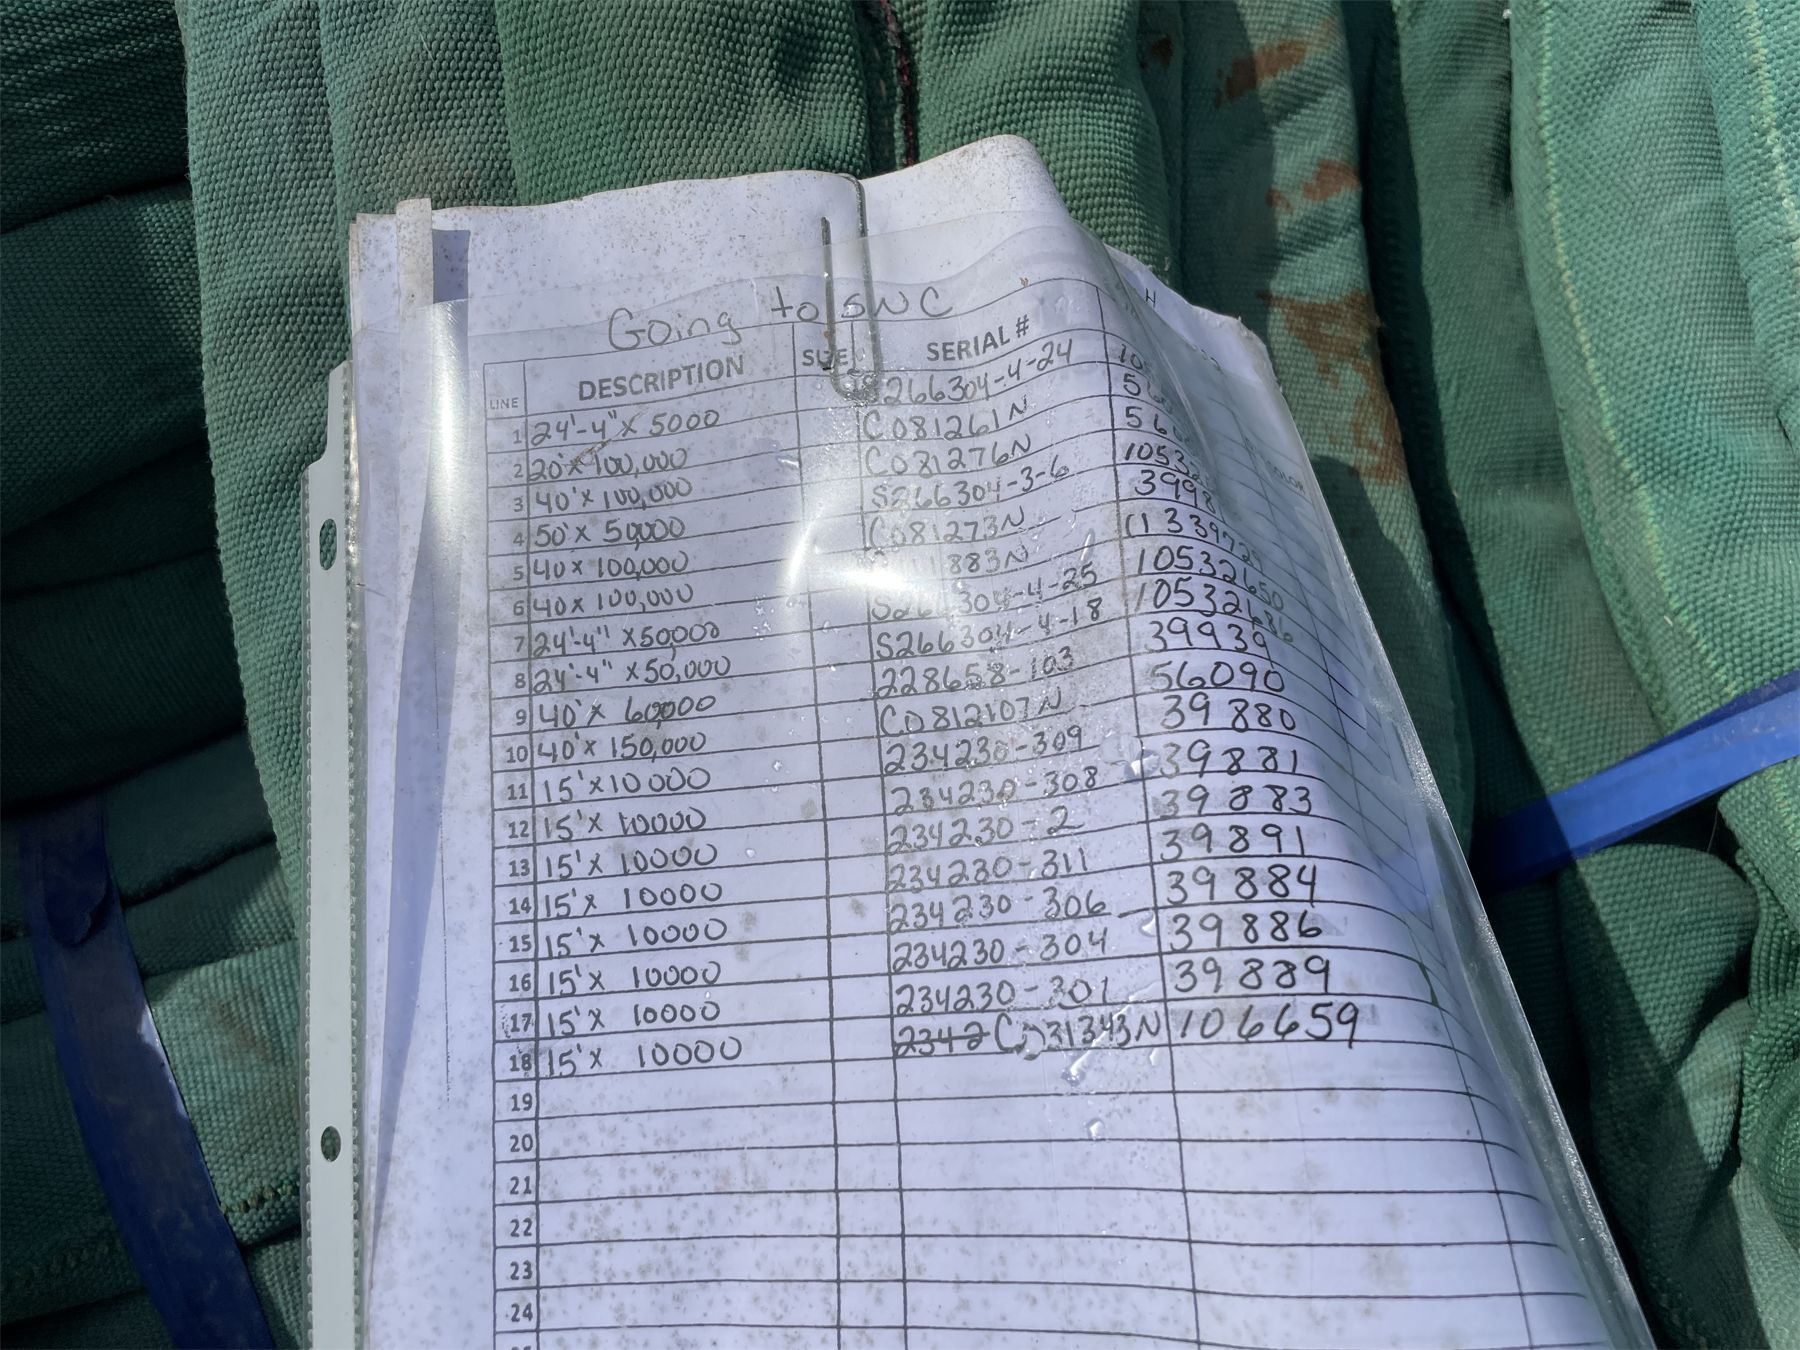 Going to SWC
LINE DESCRIPTION SIZE SERIAL #
1 24'-4" x 5000 S266304-4-24
2 20' x 100,000 C081261N
3 40' x 100,000 C081276N
4 50' x 50,000 S266304-3-6
5 40 x 100,000 C081273N
6 40 x 100,000
7 24'-4" x 50,000 S266304-4-25 10532650
8 24'-4" x 50,000 S266304-4-18 10532686
9 40' x 60000 228658-103 39939
10 40' x 150,000 C0812107N 56090
11 15' x 10000 234230-309 39880
12 15' x 10000 234230-308 39881
13 15' x 10000 234230-2 39883
14 15' x 10000 234230-311 39891
15 15' x 10000 234230-306 39884
16 15' x 10000 234230-304 39886
17 15' x 10000 234230-301 39889
18 15' x 10000 2342 C031343N 106659
19
20
21
22
23
24